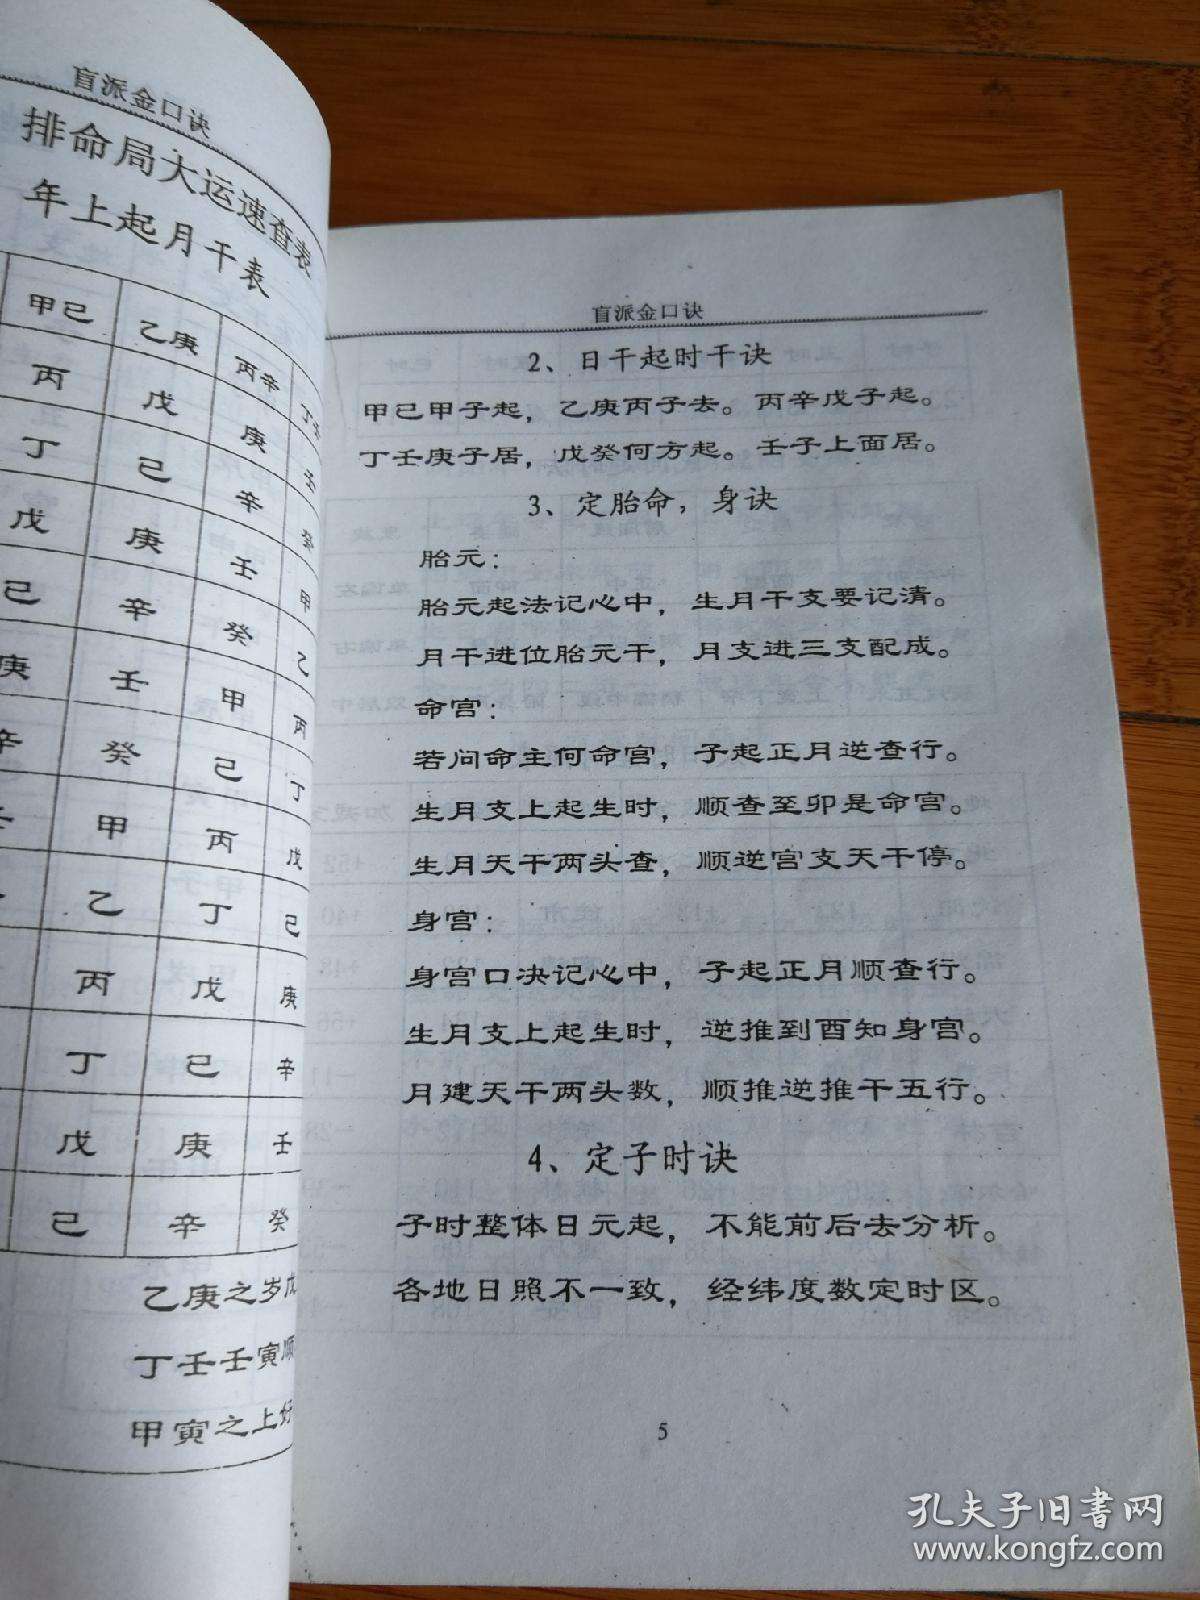 盲派金口诀
排命局大运速查表
年上起月干表
甲己 乙庚 丙辛 丁
丙 戊 庚 壬
丁 己 辛 癸
戊 庚 壬 甲
己 辛 癸 乙
庚 壬 甲 丙
辛 癸 己 丁
壬 甲 丙 戊
乙 丁 己
丙 戊 庚
丁 己 辛
戊 庚 壬
己 辛 癸
乙庚之岁戊
丁壬壬寅顺
甲寅之上好
盲派金口诀
2、日干起时干诀
甲己甲子起，乙庚丙子去。丙辛戊子起。
丁壬庚子居，戊癸何方起。壬子上面居。
3、定胎命，身诀
胎元：
胎元起法记心中，生月干支要记清。
月干进位胎元干，月支进三支配成。
命宫：
若问命主何命宫，子起正月逆查行。
生月支上起生时，顺查至卯是命宫。
生月天干两头查，顺逆宫支天干停。
身宫：
身宫口决记心中，子起正月顺查行。
生月支上起生时，逆推到酉知身宫。
月建天干两头数，顺推逆推干五行。
4、定子时诀
子时整体日元起，不能前后去分析。
各地日照不一致，经纬度数定时区。
5
孔夫子旧书网
www.kongfz.com